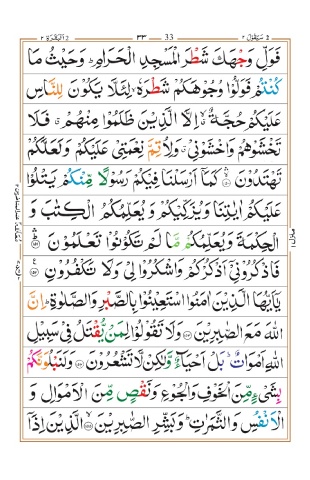 سَيَقُوْلُ ٢
٣٣
33
اَلْبَقَرَة ٢
فَوَلِّ وَجْهَكَ شَطْرَ الْمَسْجِدِ الْحَرَامِ ؕ وَحَيْثُ مَا
كُنْتُمْ فَوَلُّوْا وُجُوْهَكُمْ شَطْرَهٗ ۙ لِئَلَّا يَكُوْنَ لِلنَّاسِ
عَلَيْكُمْ حُجَّةٌ ۙ اِلَّا الَّذِيْنَ ظَلَمُوْا مِنْهُمْ ۗ فَلَا
تَخْشَوْهُمْ وَاخْشَوْنِيْ ۗ وَلِاُتِمَّ نِعْمَتِيْ عَلَيْكُمْ وَلَعَلَّكُمْ
تَهْتَدُوْنَ ۙ۝۱۵۰ كَمَآ اَرْسَلْنَا فِيْكُمْ رَسُوْلًا مِّنْكُمْ يَتْلُوْا
عَلَيْكُمْ اٰيٰتِنَا وَيُزَكِّيْكُمْ وَيُعَلِّمُكُمُ الْكِتٰبَ وَ
الْحِكْمَةَ وَيُعَلِّمُكُمْ مَّا لَمْ تَكُوْنُوْا تَعْلَمُوْنَ ۝۱۵۱
فَاذْكُرُوْنِيْٓ اَذْكُرْكُمْ وَاشْكُرُوْا لِيْ وَلَا تَكْفُرُوْنِ ۝۱۵۲
يٰٓاَيُّهَا الَّذِيْنَ اٰمَنُوا اسْتَعِيْنُوْا بِالصَّبْرِ وَالصَّلٰوةِ ؕ اِنَّ
اللّٰهَ مَعَ الصّٰبِرِيْنَ ۝۱۵۳ وَلَا تَقُوْلُوْا لِمَنْ يُّقْتَلُ فِيْ سَبِيْلِ
اللّٰهِ اَمْوَاتٌ ؕ بَلْ اَحْيَآءٌ وَّلٰكِنْ لَّا تَشْعُرُوْنَ ۝۱۵۴ وَلَنَبْلُوَنَّكُمْ
بِشَيْءٍ مِّنَ الْخَوْفِ وَالْجُوْعِ وَنَقْصٍ مِّنَ الْاَمْوَالِ وَ
الْاَنْفُسِ وَالثَّمَرٰتِ ؕ وَبَشِّرِ الصّٰبِرِيْنَ ۙ۝۱۵۵ الَّذِيْنَ اِذَآ